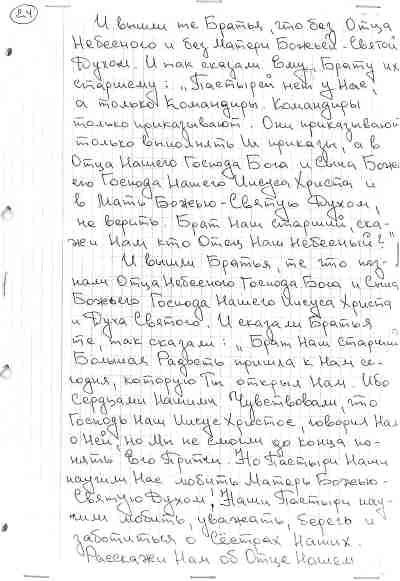 24
И вышли те Братья, что без Отца
Небесного и без Матери Божьей-Святой
Духом. И так сказали Ему, Брату их
старшему: „Пастырей нет у Нас,
а только Командиры. Командиры
только приказывают. Они приказывают
только выполнять Их приказы, а в
Отца Нашего Господа Бога и Сына Божь-
его Господа Нашего Иисуса Христа и
в Мать Божью-Святую Духом,
не верить. Брат Наш старший, ска-
жи Нам кто Отец Наш Небесный?"
И вышли Братья, те что поз-
нали Отца Небесного Господа Бога и Сына
Божьего Господа Нашего Иисуса Христа
и Духа Святого. И сказали Братья
те, так сказали: „Брат Наш старший
Большая Радость пришла к Нам се-
годня, которую Ты открыл Нам. Ибо
Сердцами Нашими Чувствовали, что
Господь Наш Иисус Христос, говорил Нам
о Ней, но Мы не смогли до конца по-
нять Его Притчи. Но Пастыри Наши
научили Нас любить Матерь Божью-
Святую Духом, Наши Пастыри нау-
чили любить, уважать, беречь и
заботиться о Сёстрах Наших.
Расскажи Нам об Отце Нашем